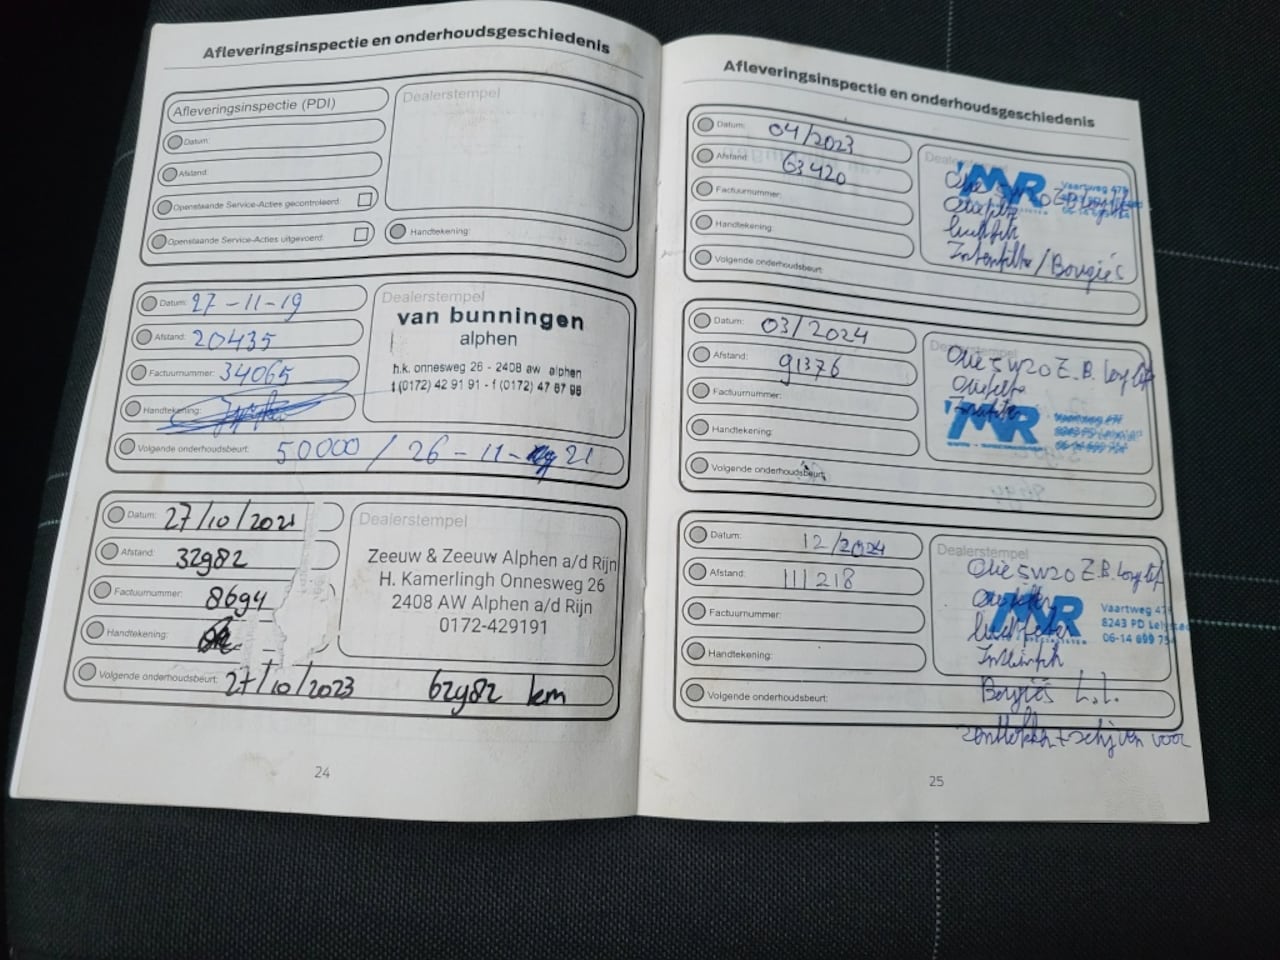 Afleveringsinspectie en onderhoudsgeschiedenis
Afleveringsinspectie (PDI)
Datum:
Afstand:
Openstaande Service-Acties gecontroleerd:
Openstaande Service-Acties uitgevoerd:
Dealerstempel
Handtekening:
Datum: 27-11-19
Afstand: 20435
Factuurnummer: 34065
Handtekening:
Volgende onderhoudsbeurt: 50000 / 26-11-21
Dealerstempel
van bunningen
alphen
h.k. onnesweg 26 - 2408 aw alphen
t (0172) 42 91 91 - f (0172) 47 67 98
Datum: 27/10/2021
Afstand: 32982
Factuurnummer: 8694
Handtekening:
Volgende onderhoudsbeurt: 27/10/2023 62982 km
Dealerstempel
Zeeuw & Zeeuw Alphen a/d Rijn
H. Kamerlingh Onnesweg 26
2408 AW Alphen a/d Rijn
0172-429191
24
Afleveringsinspectie en onderhoudsgeschiedenis
Datum: 04/2023
Afstand: 63420
Factuurnummer:
Handtekening:
Volgende onderhoudsbeurt:
Dealerstempel
MR
Vaartweg 47
Olie 5W20 Z.B. Longlife
Interfilter / Bougiés
Datum: 03/2024
Afstand: 91376
Factuurnummer:
Handtekening:
Volgende onderhoudsbeurt:
Dealerstempel
Olie 5W20 Z.B. Longlife
MR
Datum: 12/2024
Afstand: 111218
Factuurnummer:
Handtekening:
Volgende onderhoudsbeurt:
Dealerstempel
Olie 5W20 Z.B. Longlife
MR
Vaartweg 47
8243 PD Lelystad
06-14 699 754
Bougiés L.L.
schijven voor
25